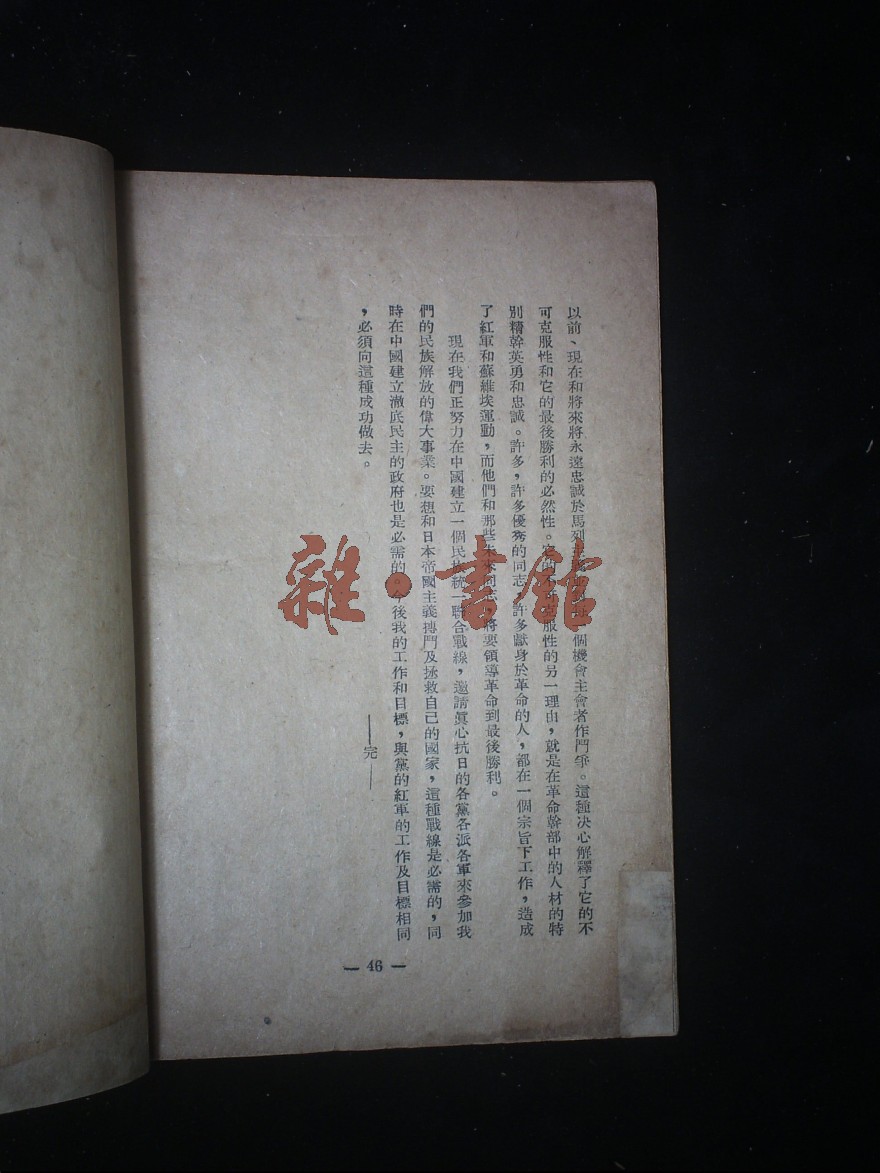 以前、現在和將來將永遠忠誠於馬列主義一個機會主會者作鬥爭。這種决心解釋了它的不
可克服性和它的最後勝利的必然性。它的不可克服性的另一理由，就是在革命幹部中的人材的特
別精幹英勇和忠誠。許多，許多優秀的同志，許多獻身於革命的人，都在一個宗旨下工作，造成
了紅軍和蘇維埃運動，而他們和那些未來同志，將要領導革命到最後勝利。
現在我們正努力在中國建立一個民族統一聯合戰線，邀請眞心抗日的各黨各派各軍來參加我
們的民族解放的偉大事業。要想和日本帝國主義搏鬥及拯救自己的國家，這種戰線是必需的，同
時在中國建立澈底民主的政府也是必需的。今後我的工作和目標，與黨的紅軍的工作及目標相同
，必須向這種成功做去。
——完——
— 46 —
雜·書館